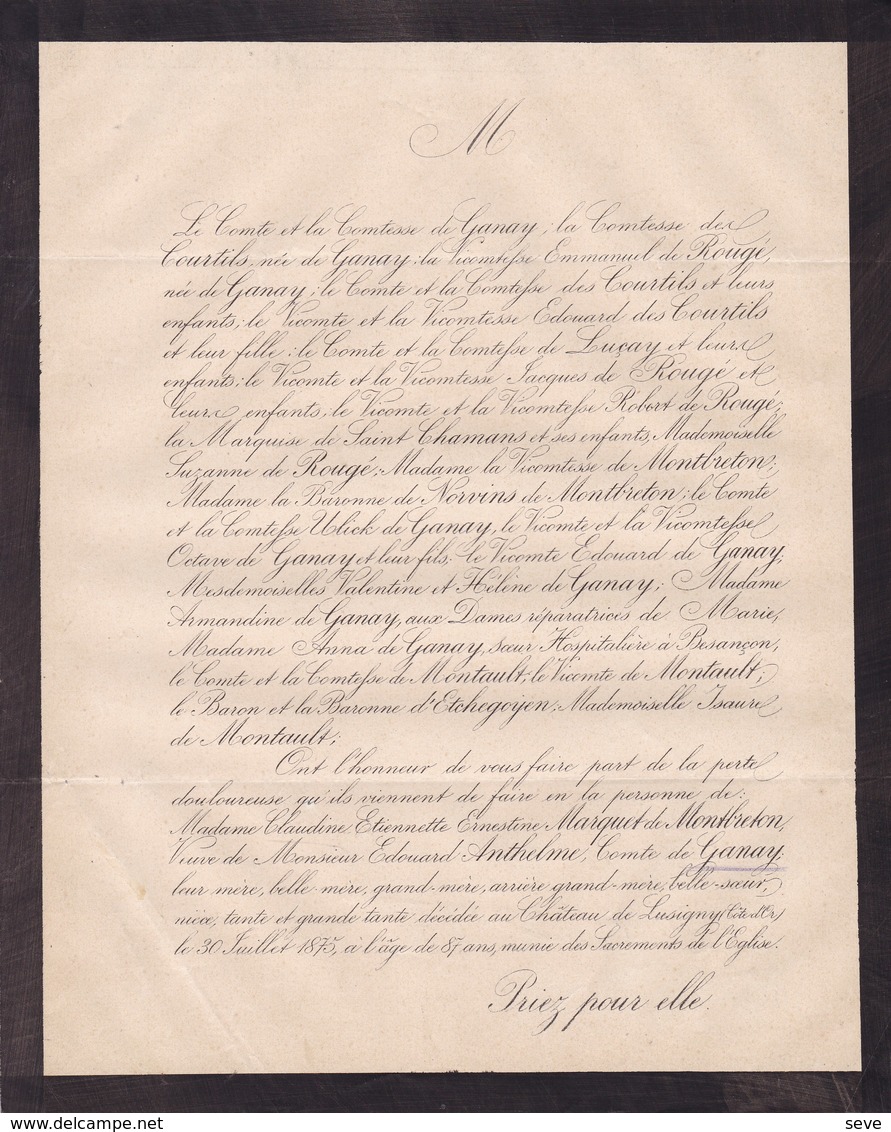 M
Le Comte et la Comtesse de Ganay; la Comtesse des
Courtils, née de Ganay; la Vicomtesse Emmanuel de Rougé,
née de Ganay; le Comte et la Comtesse des Courtils et leurs
enfants; le Vicomte et la Vicomtesse Edouard des Courtils
et leur fille; le Comte et la Comtesse de Luçay et leurs
enfants; le Vicomte et la Vicomtesse Jacques de Rougé et
leurs enfants; le Vicomte et la Vicomtesse Robert de Rougé;
la Marquise de Saint Chamans et ses enfants, Mademoiselle
Suzanne de Rougé; Madame la Vicomtesse de Montbreton;
Madame la Baronne de Norvins de Montbreton; le Comte
et la Comtesse Ulick de Ganay, le Vicomte et la Vicomtesse
Octave de Ganay et leur fils; le Vicomte Edouard de Ganay,
Mesdemoiselles Valentine et Hélène de Ganay; Madame
Armandine de Ganay, aux Dames réparatrices de Marie,
Madame Anna de Ganay, sœur Hospitalière à Besançon,
le Comte et la Comtesse de Montault; le Vicomte de Montault;
le Baron et la Baronne d'Etchegoyen; Mademoiselle Isaure
de Montault;
Ont l'honneur de vous faire part de la perte
douloureuse qu'ils viennent de faire en la personne de:
Madame Claudine Etiennette Ernestine Marquet de Montbreton,
Veuve de Monsieur Edouard Anthelme, Comte de Ganay;
leur mère, belle-mère, grand-mère, arrière grand-mère, belle-sœur,
nièce, tante et grande tante décédée au Château de Lusigny (Côte d'Or)
le 30 Juillet 1875, à l'âge de 87 ans, munie des Sacrements de l'Eglise.
Priez pour elle.
seve